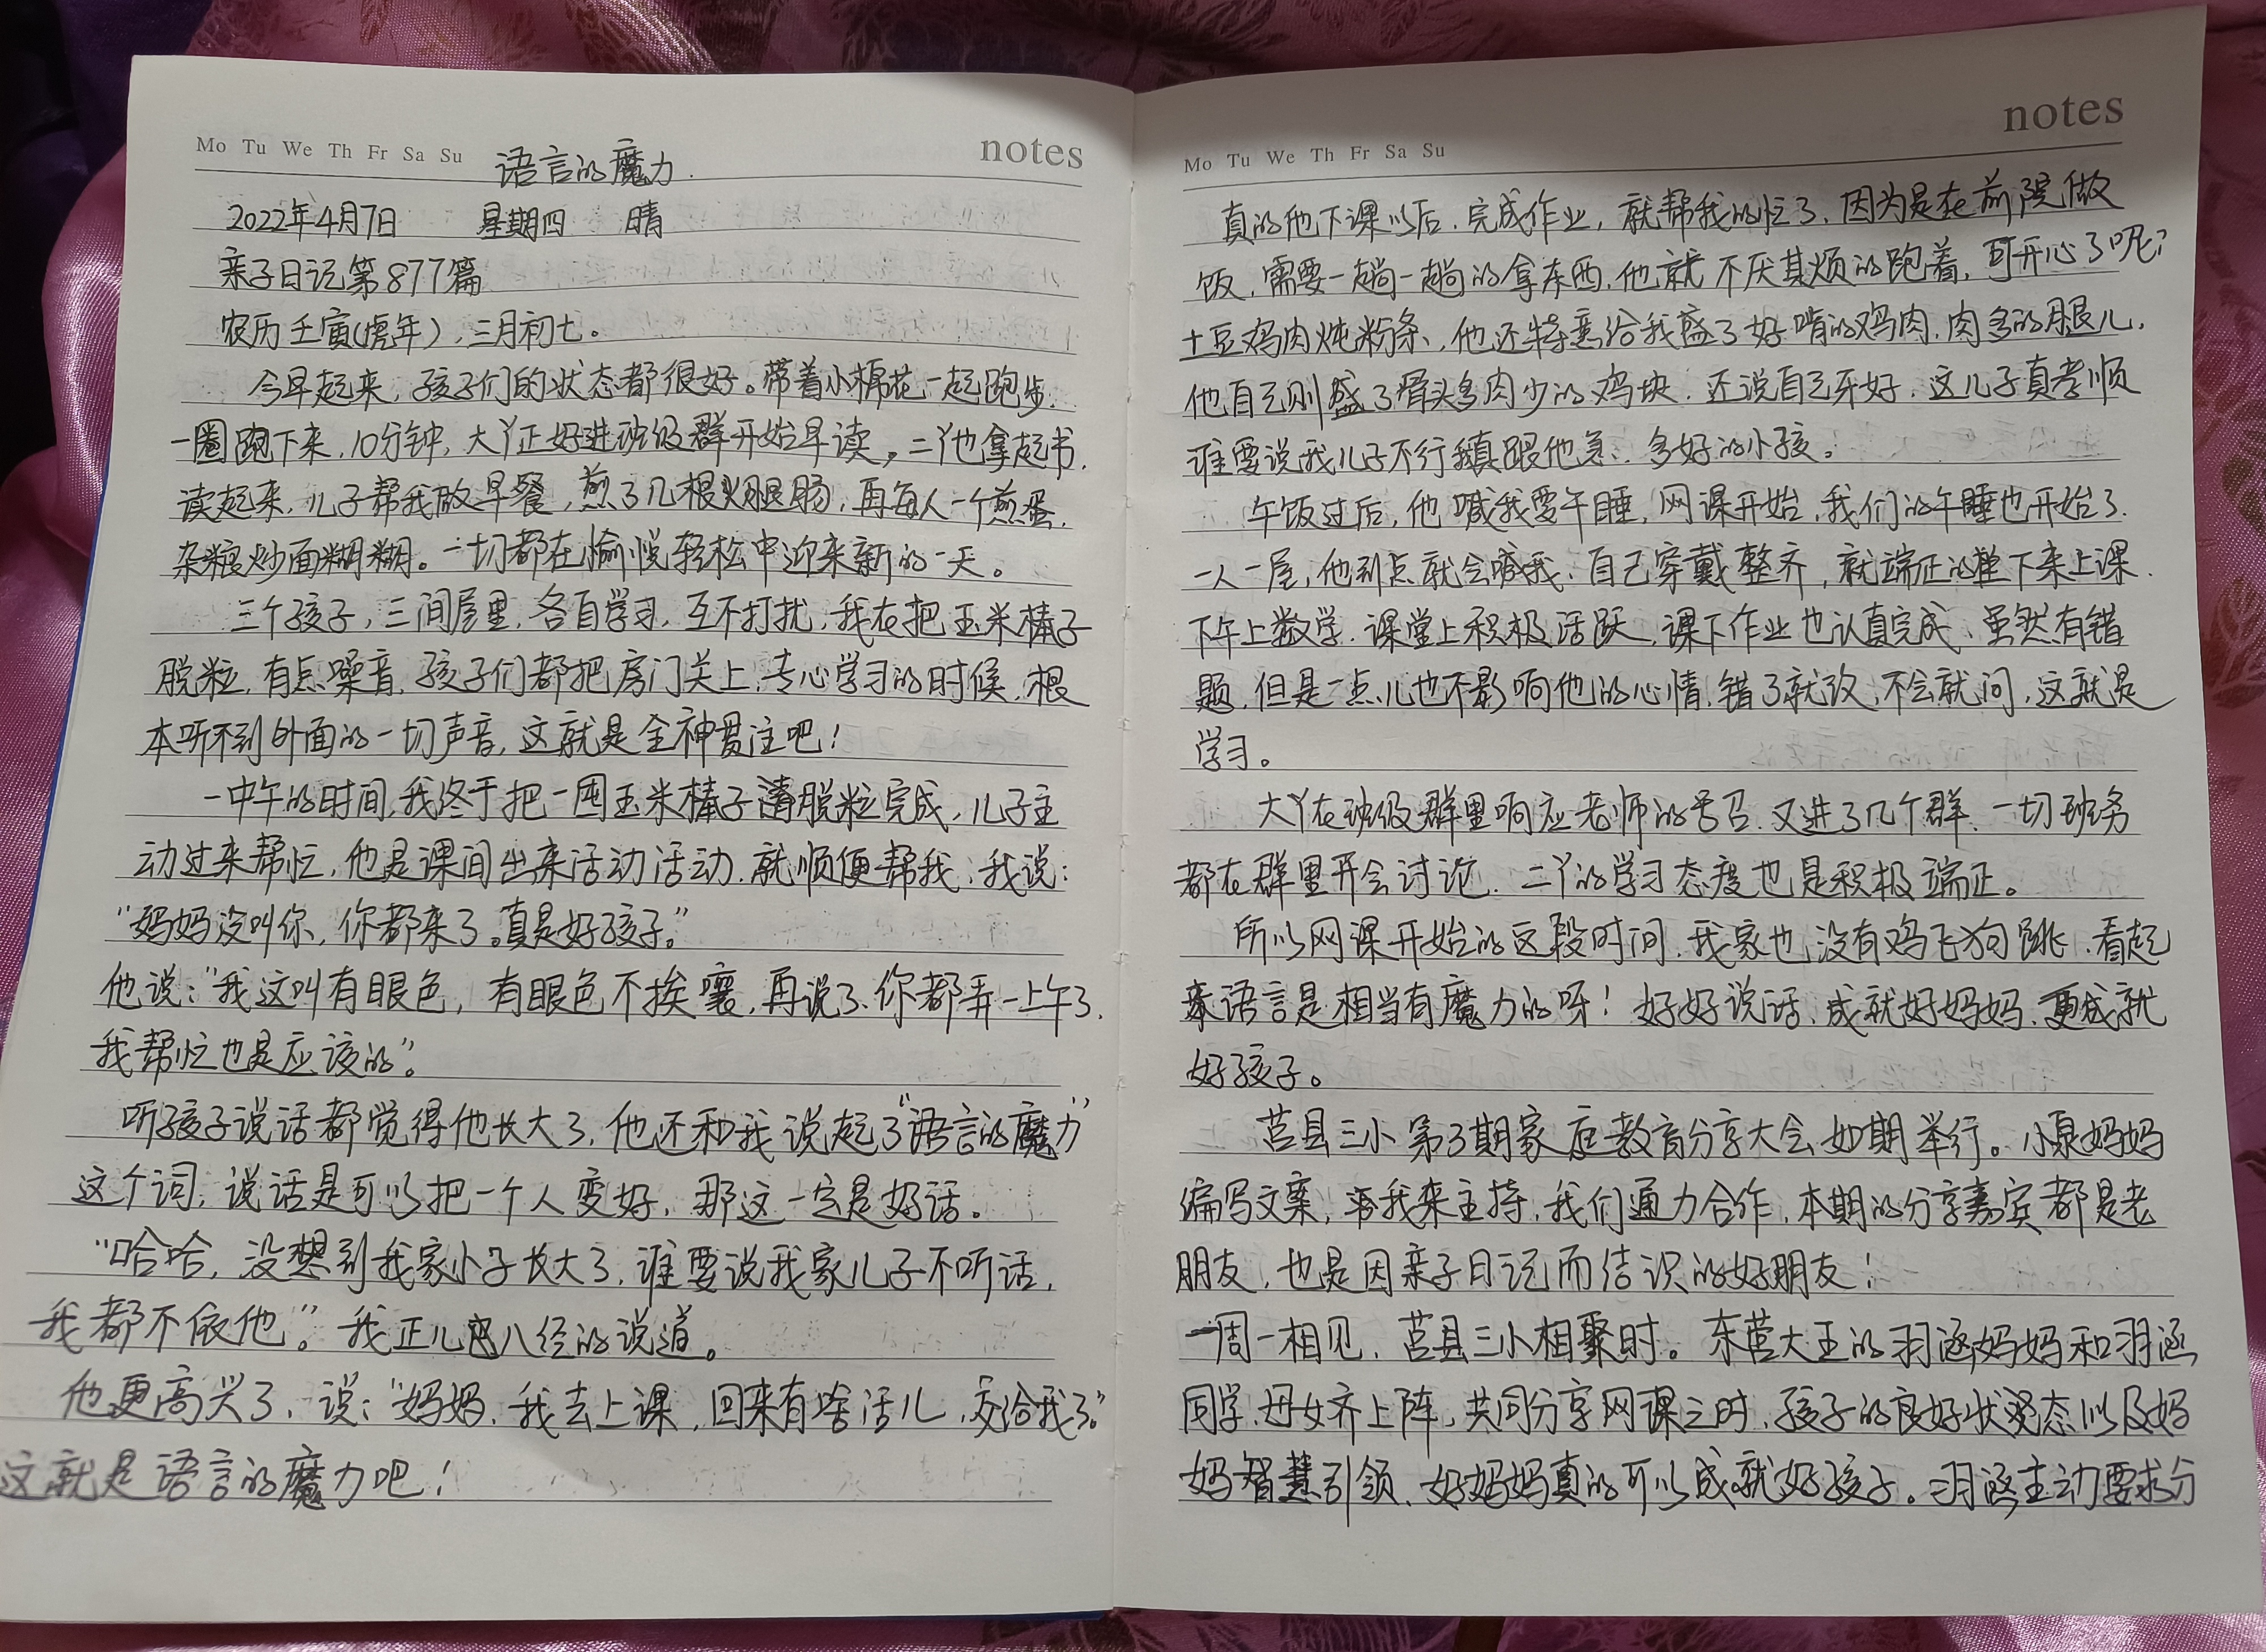 Mo Tu We Th Fr Sa Su
notes
语言的魔力.
2022年4月7日 星期四 晴
亲子日记第877篇
农历壬寅(虎年),三月初七。
今早起来,孩子们的状态都很好。带着小棉花一起跑步.
一圈跑下来,10分钟,大丫正好进班级群开始早读。二丫也拿起书.
读起来,儿子帮我做早餐,煎了几根火腿肠,再每人一个煎蛋,
杂粮炒面糊糊。一切都在愉悦轻松中迎来新的一天。
三个孩子,三间屋里,各自学习,互不打扰,我在把玉米棒子
脱粒,有点噪音,孩子们都把房门关上,专心学习的时候,根
本听不到外面的一切声音,这就是全神贯注吧!
一中午的时间,我终于把一囤玉米棒子脱粒完成,儿子主
动过来帮忙,他是课间出来活动活动,就顺便帮我,我说:
“妈妈没叫你,你都来了。真是好孩子。”
他说:“我这叫有眼色,有眼色不挨嚷,再说了,你都弄一上午了,
我帮忙也是应该的”。
听孩子说话都觉得他长大了,他还和我说起了“语言的魔力”
这个词,说话是可以把一个人变好,那这一定是好话。
“哈哈,没想到我家小子长大了,谁要说我家儿子不听话,
我都不依他”。我正儿八经的说道。
他更高兴了,说:“妈妈,我去上课,回来有啥活儿,交给我了。”
这就是语言的魔力吧!
Mo Tu We Th Fr Sa Su
notes
真的他下课以后,完成作业,就帮我的忙了,因为是在前院做
饭,需要一趟一趟的拿东西,他就不厌其烦的跑着,可开心了呢?
土豆鸡肉炖粉条,他还特意给我盛了好啃的鸡肉,肉多的腿儿,
他自己则盛了骨头多肉少的鸡块,还说自己牙好,这儿子真孝顺
谁要说我儿子不行我真跟他急,多好的小孩。
午饭过后,他喊我要午睡,网课开始,我们的午睡也开始了.
一人一屋,他到点就会喊我,自己穿戴整齐,就端正的坐下来上课.
下午上数学,课堂上积极活跃,课下作业也认真完成,虽然有错
题,但是一点儿也不影响他的心情,错了就改,不会就问,这就是
学习。
大丫在班级群里响应老师的号召,又进了几个群,一切班务
都在群里开会讨论,二丫的学习态度也是积极端正。
所以网课开始的这段时间,我家也没有鸡飞狗跳,看起
来语言是相当有魔力的呀!好好说话,成就好妈妈,更成就
好孩子。
莒县三小第3期家庭教育分享大会如期举行。小泉妈妈
编写文案,我来主持,我们通力合作,本期的分享嘉宾都是老
朋友,也是因亲子日记而结识的好朋友!
一周一相见,莒县三小相聚时。东营大王的羽涵妈妈和羽涵
同学,母女齐上阵,共同分享网课之时,孩子的良好状态以及妈
妈智慧引领,好妈妈真的可以成就好孩子。羽涵主动要求分